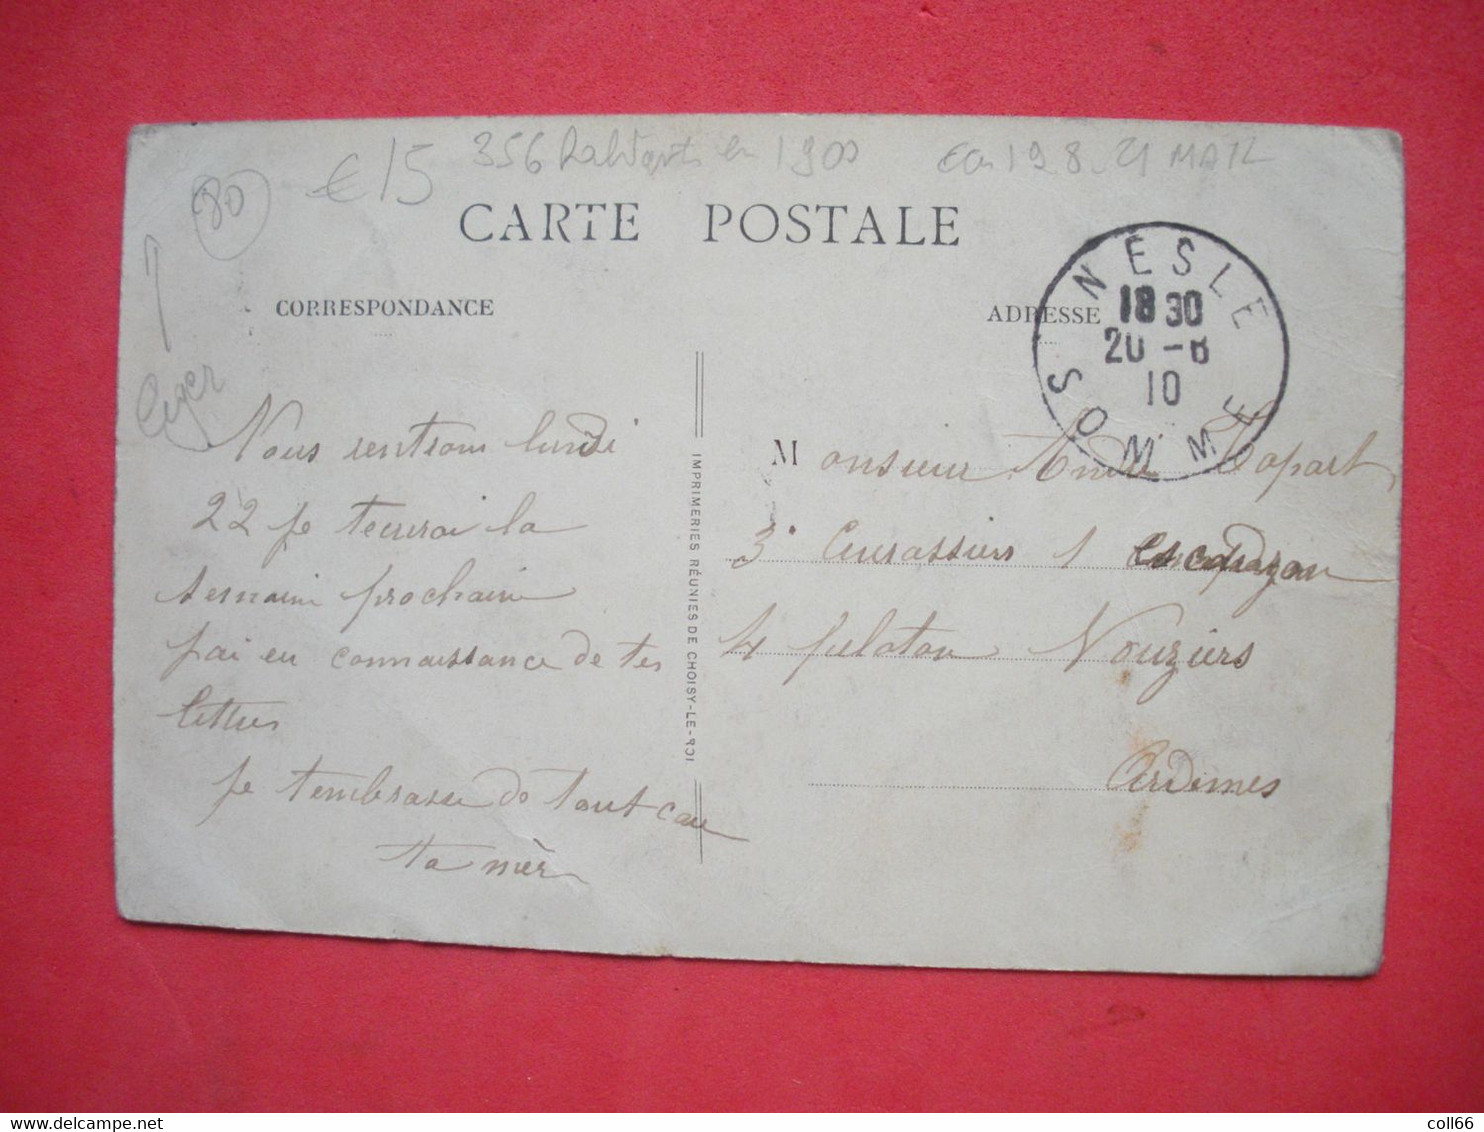 80
€15
356 habitants en 1900
CARTE POSTALE
CORRESPONDANCE
ADRESSE
NESLE
18 30
20 - 8
10
SOMME
Nous rentrons lundi
22 je tecrirai la
semaine prochaine
j'ai eu connaissance de tes
lettres
Je tembrasse de tout cœu
ta mèr
IMPRIMERIES RÉUNIES DE CHOISY-LE-ROI
Monsieur André Copart
3e Cuirassiers 1 Escadron
4 peloton Vouziers
Ardennes
delcampe.net
coll66